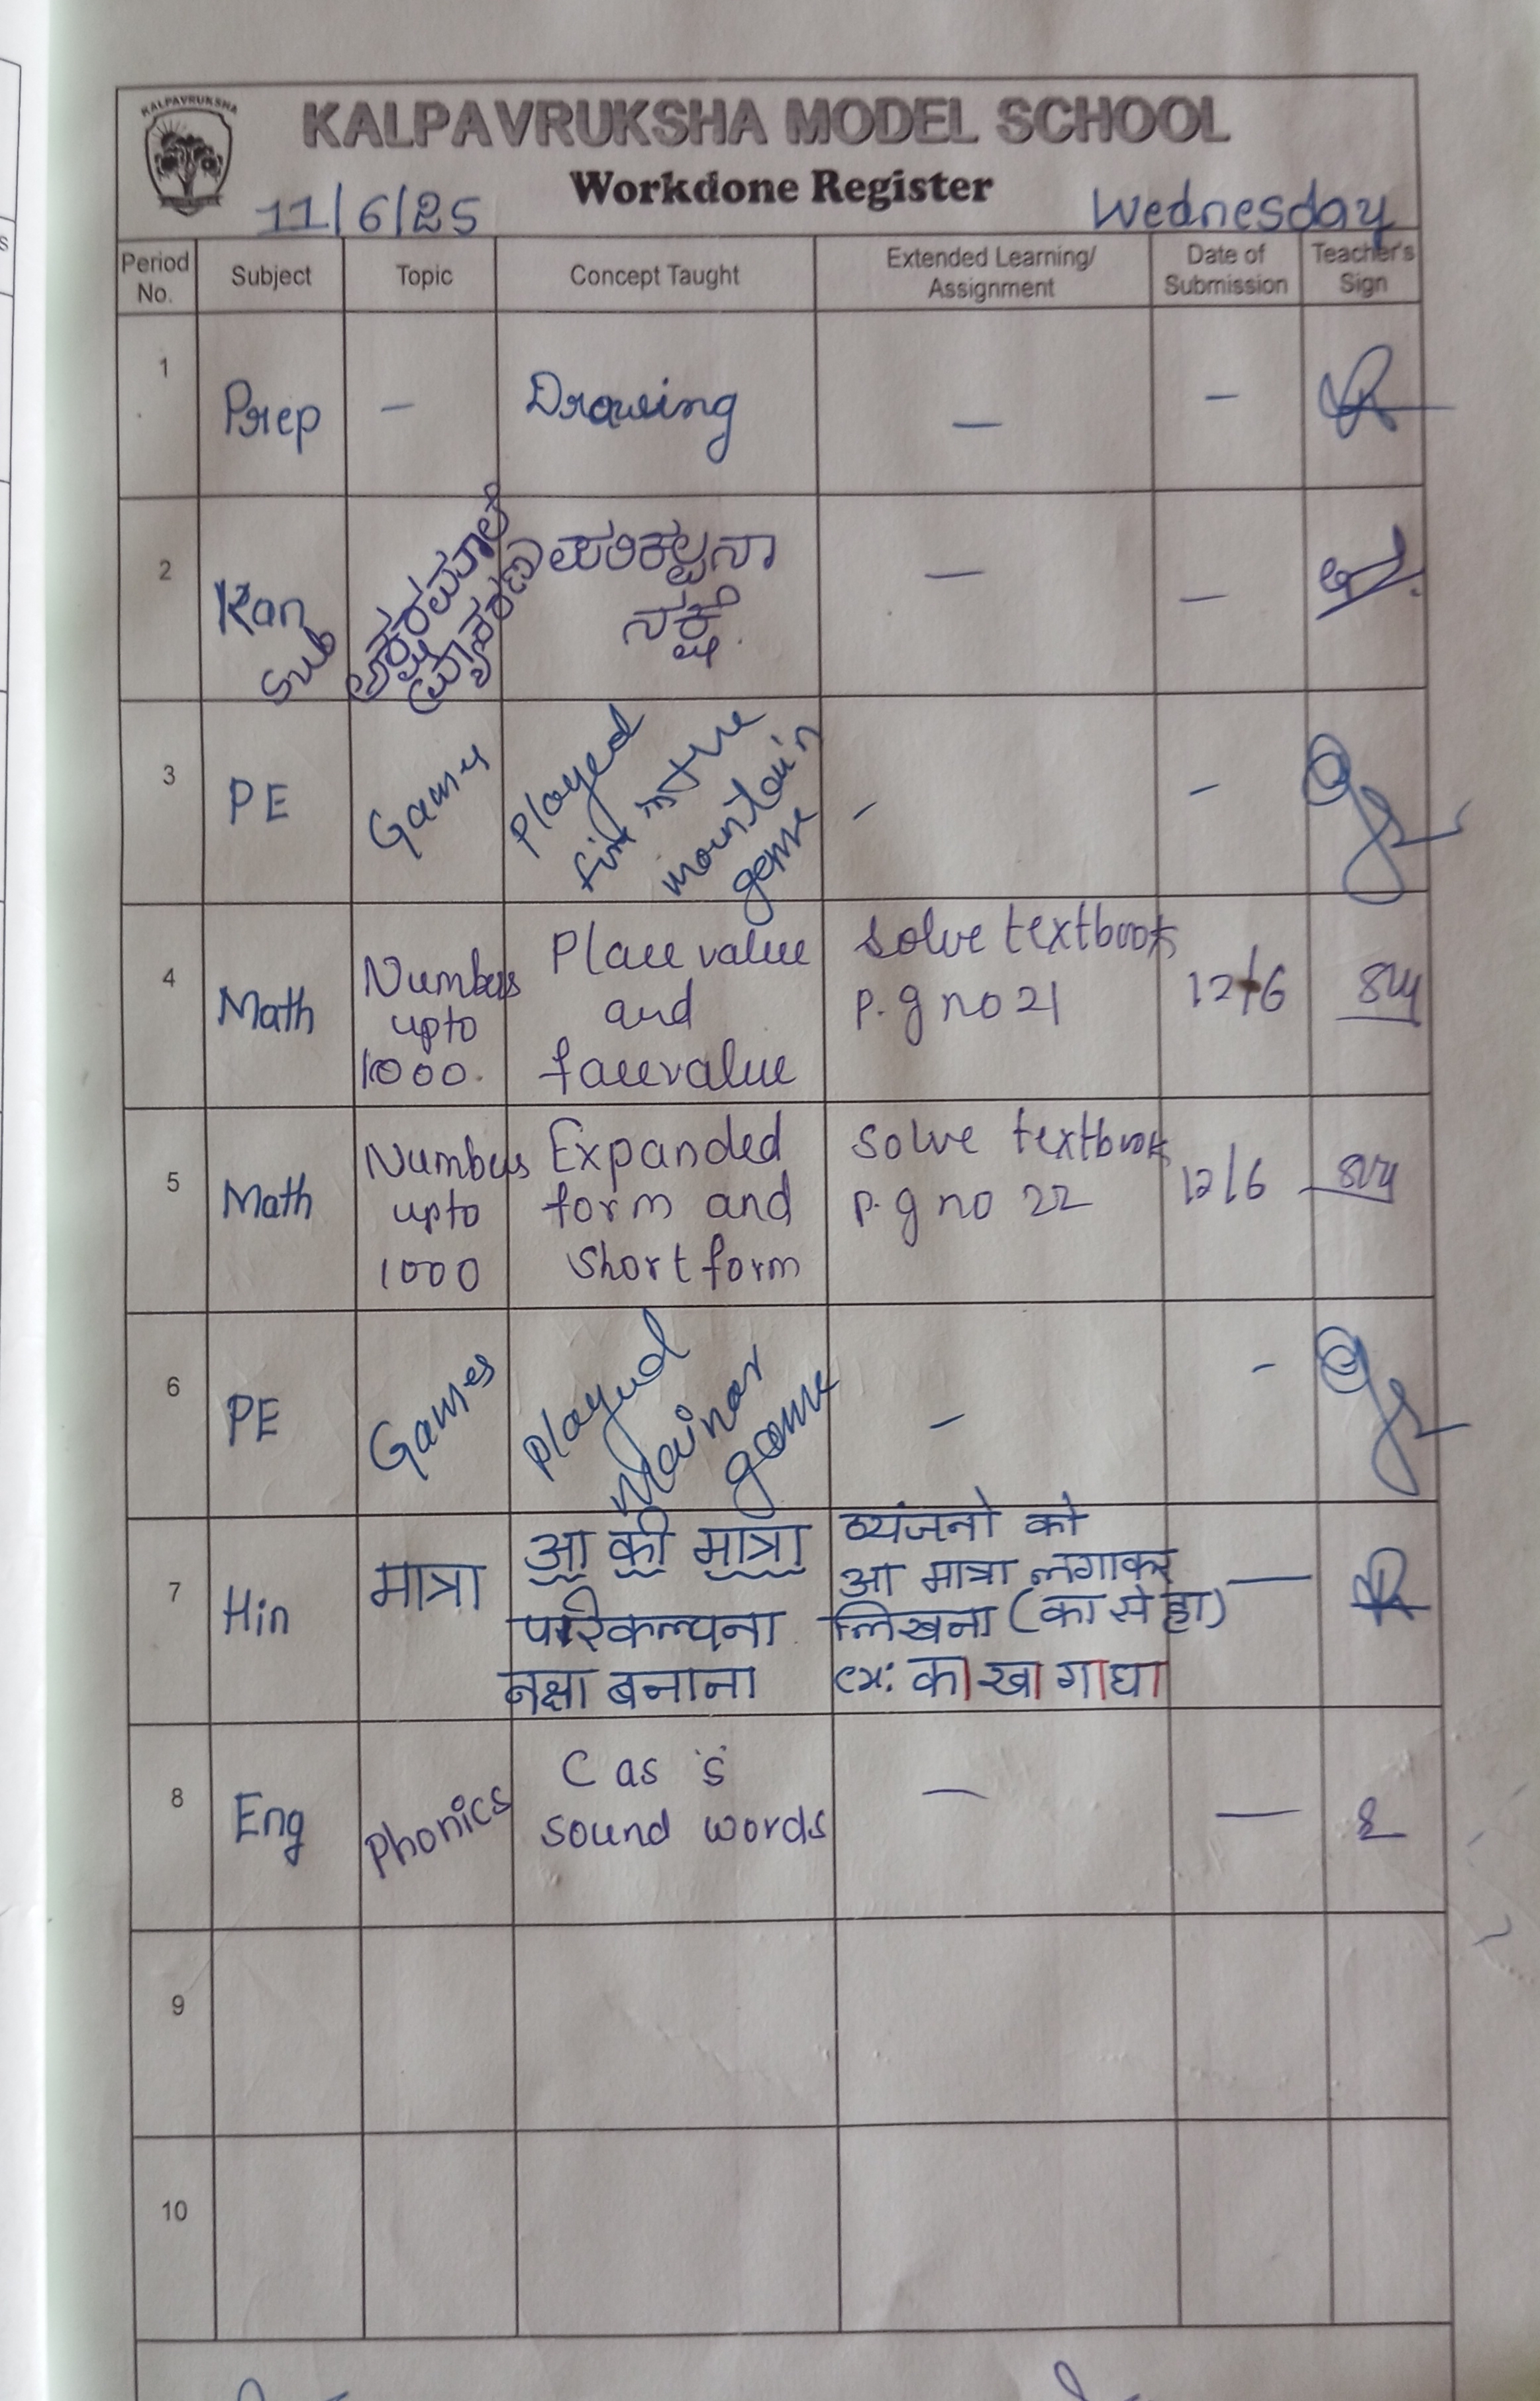 KALPAVRUKSHA
KALPAVRUKSHA MODEL SCHOOL
Workdone Register
11/6/25
Wednesday
Period No.
Subject
Topic
Concept Taught
Extended Learning/ Assignment
Date of Submission
Teacher's Sign
1
Prep
–
Drawing
–
–
2
Kan
Sub
ಅಕ್ಷರಮಾಲೆ
ವ್ಯಾಕರಣ
ಪರಿಕಲ್ಪನಾ
ನಕ್ಷೆ.
–
–
3
PE
Games
Played
fire in the
mountain
game
–
–
4
Math
Numbers
upto
1000.
Place value
and
face value
Solve textbook
p.g no 21
12/6
5
Math
Numbers
upto
1000
Expanded
form and
short form
Solve textbook
p.g no 22
12/6
6
PE
Games
played
Mainor
game
–
–
7
Hin
मात्रा
आ की मात्रा
परिकल्पना
नक्षा बनाना
व्यंजनो को
आ मात्रा लगाकर
लिखना (का से हा)
ex: का खा गा घा
–
8
Eng
Phonics
C as 's'
sound words
–
–
9
10